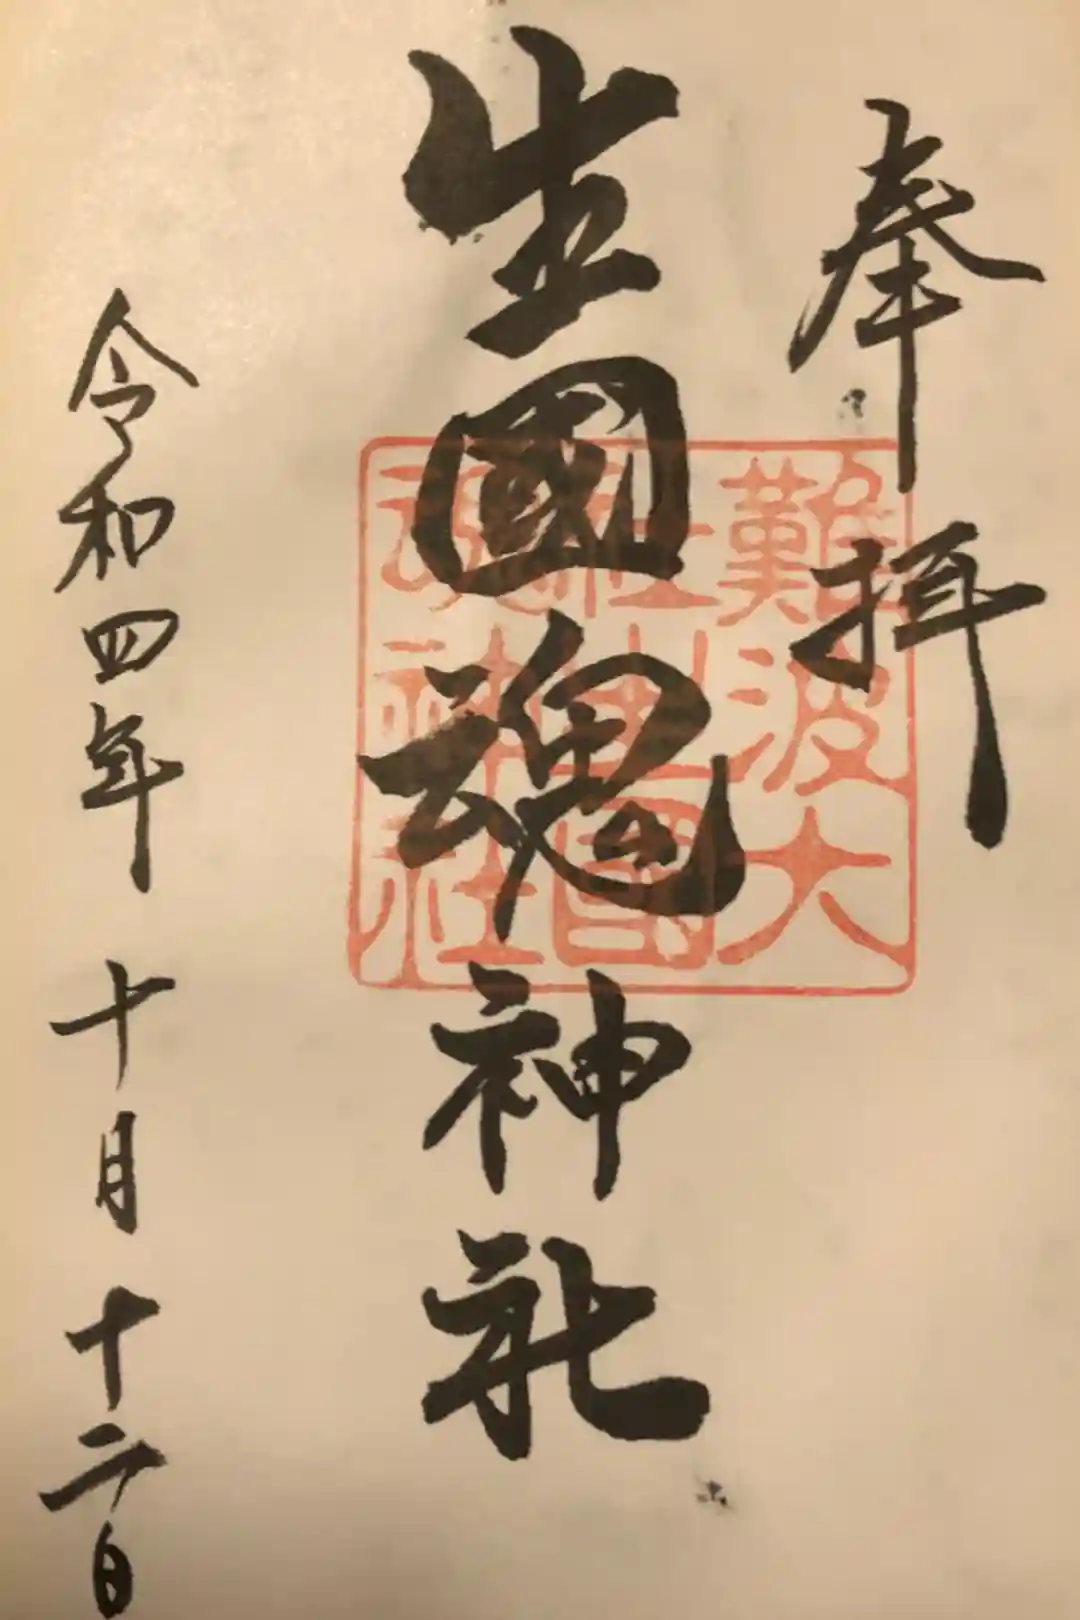 奉拝
生國魂神社
難波大社生國魂神社
令和四年十月十二日